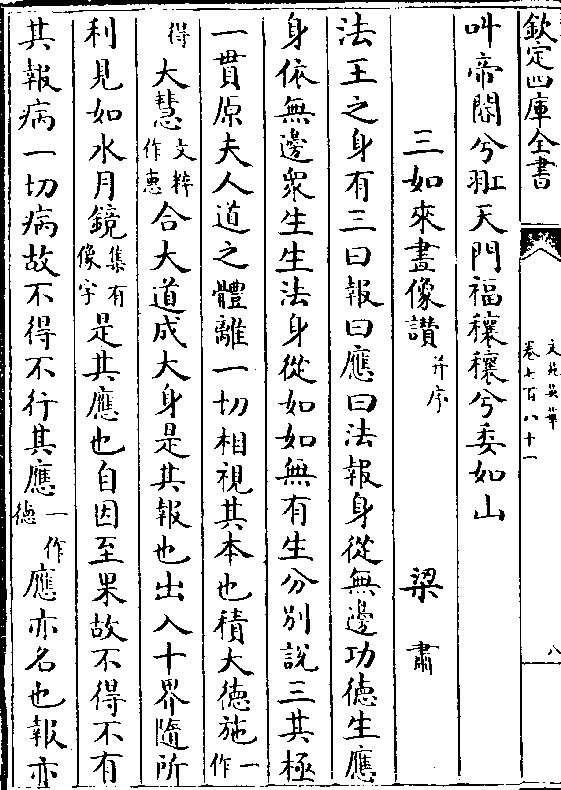 欽定四庫全書
文苑英華
卷七百八十一
八
叫帝閽兮羾天門福穰穰兮委如山
三如來畫像讃并序
梁肅
法王之身有三曰報曰應曰法報身從無邊功德生應
身依無邊衆生生法身從如如無有生分别說三其極
一貫原夫人道之體離一切相視其本也積大德施一作
得大慧文粹作惠合大道成大身是其報也出入十界隨所
利見如水月鏡集有像字是其應也自因至果故不得不有
其報病一切病故不得不行其應一作德應亦名也報亦